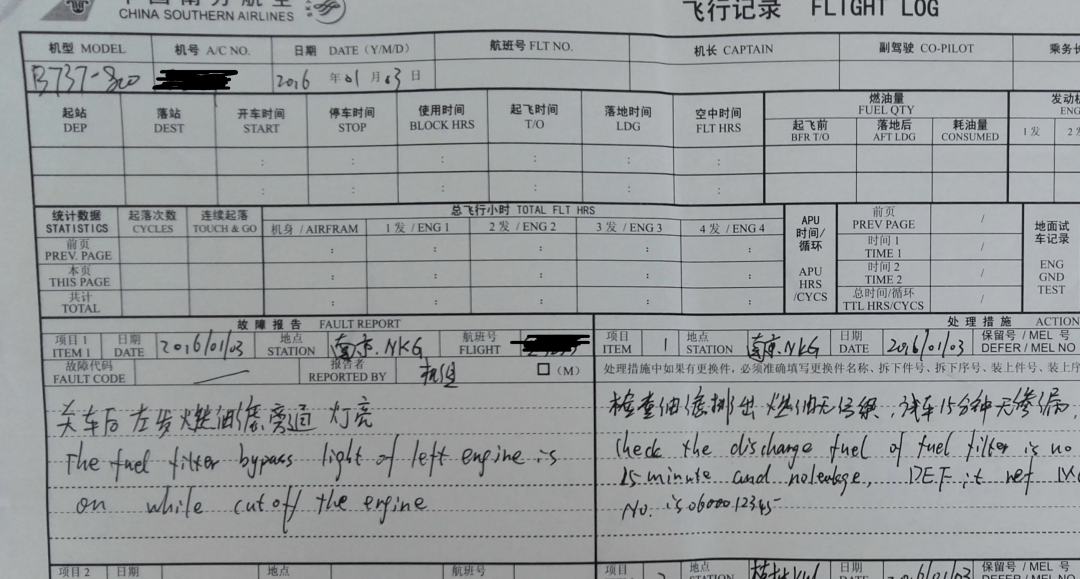 中国南方航空
CHINA SOUTHERN AIRLINES
飞行记录 FLIGHT LOG
机型 MODEL 机号 A/C NO. 日期 DATE (Y/M/D) 航班号 FLT NO. 机长 CAPTAIN 副驾驶 CO-PILOT 乘务长
B737-800 2016 年 01 月 03 日
起站 落站 开车时间 停车时间 使用时间 起飞时间 落地时间 空中时间 燃油量
DEP DEST START STOP BLOCK HRS T/O LDG FLT HRS FUEL QTY ENG
起飞前 落地后 耗油量 1 发
BFR T/O AFT LDG CONSUMED
: : : : : :
: : : : : :
统计数据 起落次数 连续起落 总飞行小时 TOTAL FLT HRS
STATISTICS CYCLES TOUCH & GO 机身 / AIRFRAM 1 发 / ENG 1 2 发 / ENG 2 3 发 / ENG 3 4 发 / ENG 4
前页
PREV. PAGE : : : : :
本页
THIS PAGE : : : : :
共计
TOTAL : : : : :
APU
时间/
循环
APU
HRS
/CYCS
前页
PREV PAGE /
时间 1
TIME 1 /
时间 2
TIME 2 /
总时间/循环
TTL HRS/CYCS /
地面试
车记录
ENG
GND
TEST
故障报告 FAULT REPORT
项目 1 日期 地点 航班号
ITEM 1 DATE 2016/01/03 STATION 南京.NKG FLIGHT
故障代码 报告者
FAULT CODE REPORTED BY 机组 (M)
关车后左发燃油滤旁通灯亮
The fuel filter bypass light of left engine is
on while cutoff the engine
处理措施 ACTION
项目 地点 日期 保留号 / MEL 号
ITEM 1 STATION 南京.NKG DATE 2016/01/03 DEFER / MEL NO
处理措施中如果有更换件，必须准确填写更换件名称、拆下件号、拆下序号、装上件号、装上序
检查油滤排出燃油无,试车15分钟无渗漏,
Check the discharge fuel of fuel filter is no
15 minute and noleakage, DEF it ref
No. is 0600012345
项目 2 日期 地点 航班号
项目 地点 日期 保留号 / MEL 号
ITEM 2 STATION DATE 2016/01/03 DEFER / MEL NO